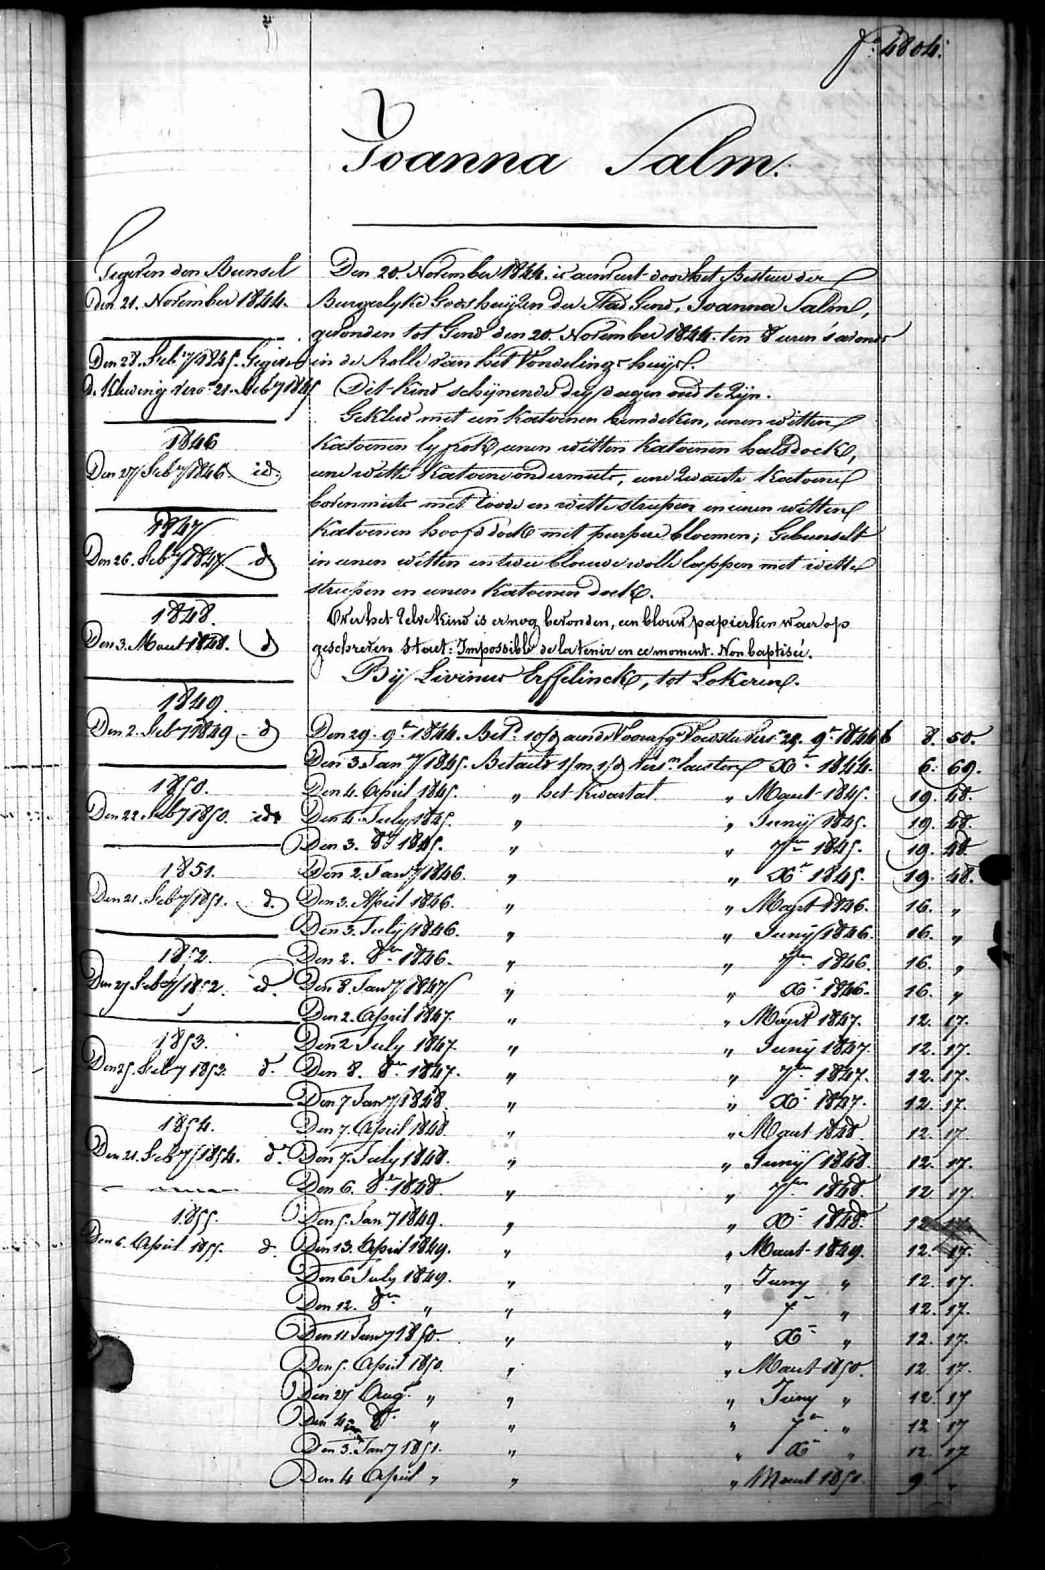 f.° 4804.
Joanna Salm.
Gegeven den Bunsel
Den 21. November 1844.
Den 28. Feb.ry 1845. Gegeven
21. Feb.ry 1845
1846
Den 27 Feb.ry 1846. id.
1847
Den 26. Feb.ry 1847 d
1848.
Den 3. Maert 1848. d
1849.
Den 2. Feb.ry 1849 d
1850.
Den 22. Feb.ry 1850. id.
1851.
Den 21. Feb.ry 1851. d.
1852.
Den 27 Feb.ry 1852. id.
1853.
Den 25. Feb.ry 1853. d.
1854.
Den 21. Feb.ry 1854. d.
1855.
Den 6. April 1855. d.
Den 20. November 1844. is aenveert door het Bestuer der
Burgerlyke Godshuyzen der Stad Gend, Joanna Salm,
gevonden tot Gend den 20. November 1844. ten 8 uren 's avonds
in de Rolle van het Vondelingshuys.
Dit kind schynende dry dagen oud te zyn.
Gekleed met een katoenen hemdeken, eenen witten
katoenen lyfrok, eenen witten katoenen halsdoek,
eene witte katoene ondermuts, eene zwarte katoene
bovenmuts met roode en witte streepen en eenen witten
katoenen hoofddoek met purpere bloemen; Gebunselt
in eenen witten en twee blauwe wolle lappen met witte
streepen en eenen katoenen doek.
Over het zelve kind is er nog bevonden, een blouw papierken waer op
geschreven staet: Impossible de la tenir en ce moment. Non baptisée.
Bij Livinus Erffelinck, tot Lokeren.
Den 29. 9.br 1844. Bet.d 9.br 1844 8. 50.
Den 3 Jan.ry 1845. Betaeld X.br 1844. 6. 69.
Den 4. April 1845. " het kwartael " Maert 1845. 19. 48.
Den 4. July 1845. " " Juny 1845. 19. 48.
Den 3. 8.br 1845. " " 7.bre 1845. 19. 48.
Den 2. Jan.ry 1846. " " X.br 1845. 19. 48.
Den 3. April 1846. " " Maert 1846. 16. "
Den 3. July 1846. " " Juny 1846. 16. "
Den 2. 8.bre 1846. " " 7.bre 1846. 16. "
Den 8. Jan.ry 1847 " " X.br 1846. 16. "
Den 2. April 1847. " " Maert 1847. 12. 17.
Den 2 July 1847. " " Juny 1847. 12. 17.
Den 8. 8.bre 1847. " " 7.bre 1847. 12. 17.
Den 7 Jan.ry 1848. " " X.br 1847. 12. 17.
Den 7. April 1848. " " Maert 1848. 12. 17
Den 7. July 1848. " " Juny 1848. 12. 17.
Den 6. 8.br 1848. " " 7.bre 1848. 12 17.
Den 5. Jan.ry 1849. " " X.br 1848. 12 17.
Den 13. April 1849. " " Maert 1849. 12. 17.
Den 6 July 1849. " " Juny " 12. 17.
Den 12. 8.bre " " " 7.bre " 12. 17.
Den 11 Jan.ry 1850. " " X.br " 12. 17.
Den 5. April 1850. " " Maert 1850. 12. 17.
Den 27 Aug.t " " " Juny " 12. 17
Den 4 8.br " " " 7.bre " 12 17
Den 3. Jan.ry 1851. " " X.br " 12. 17
Den 4 April " " " Maert 1851. 9. "